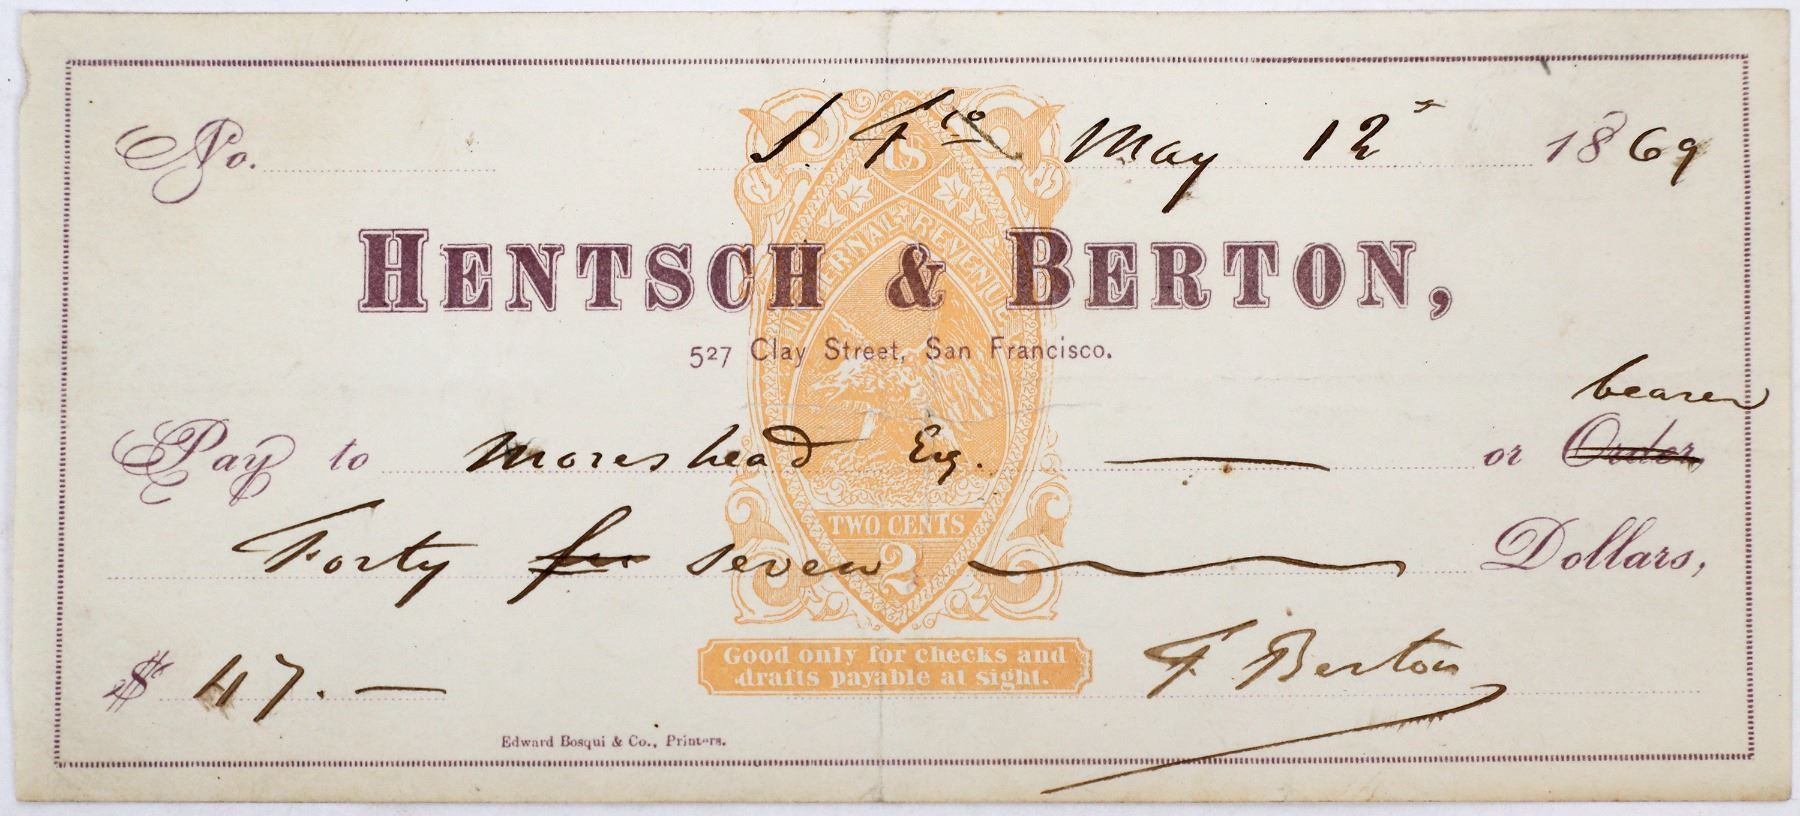 No. S Fco May 12 1869
US
INTERNAL REVENUE
HENTSCH & BERTON,
527 Clay Street, San Francisco.
bearer
Pay to Moreshead Esq. — or Order,
Forty seven Dollars,
TWO CENTS
2
Good only for checks and
drafts payable at sight.
$ 47. — F. Berton
Edward Bosqui & Co., Printers.